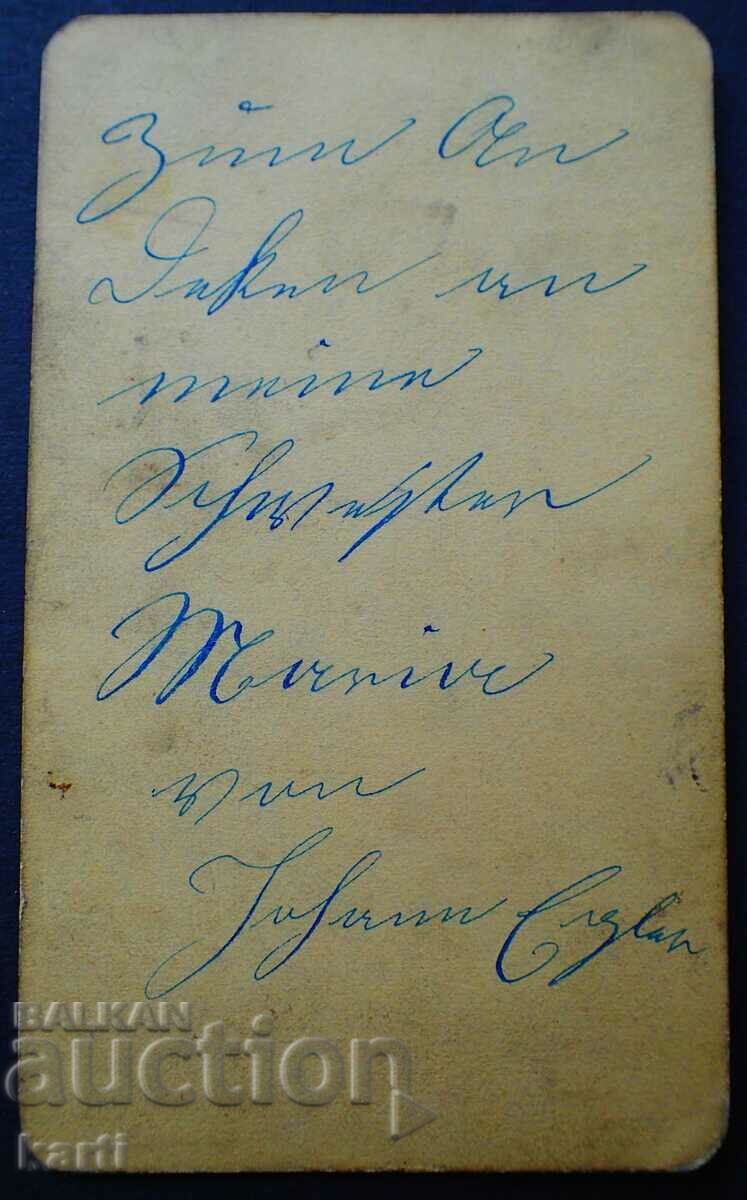 Zum An
Deken an
meine
Schwester
Marie
von
Johann
BALKAN
auction
karti